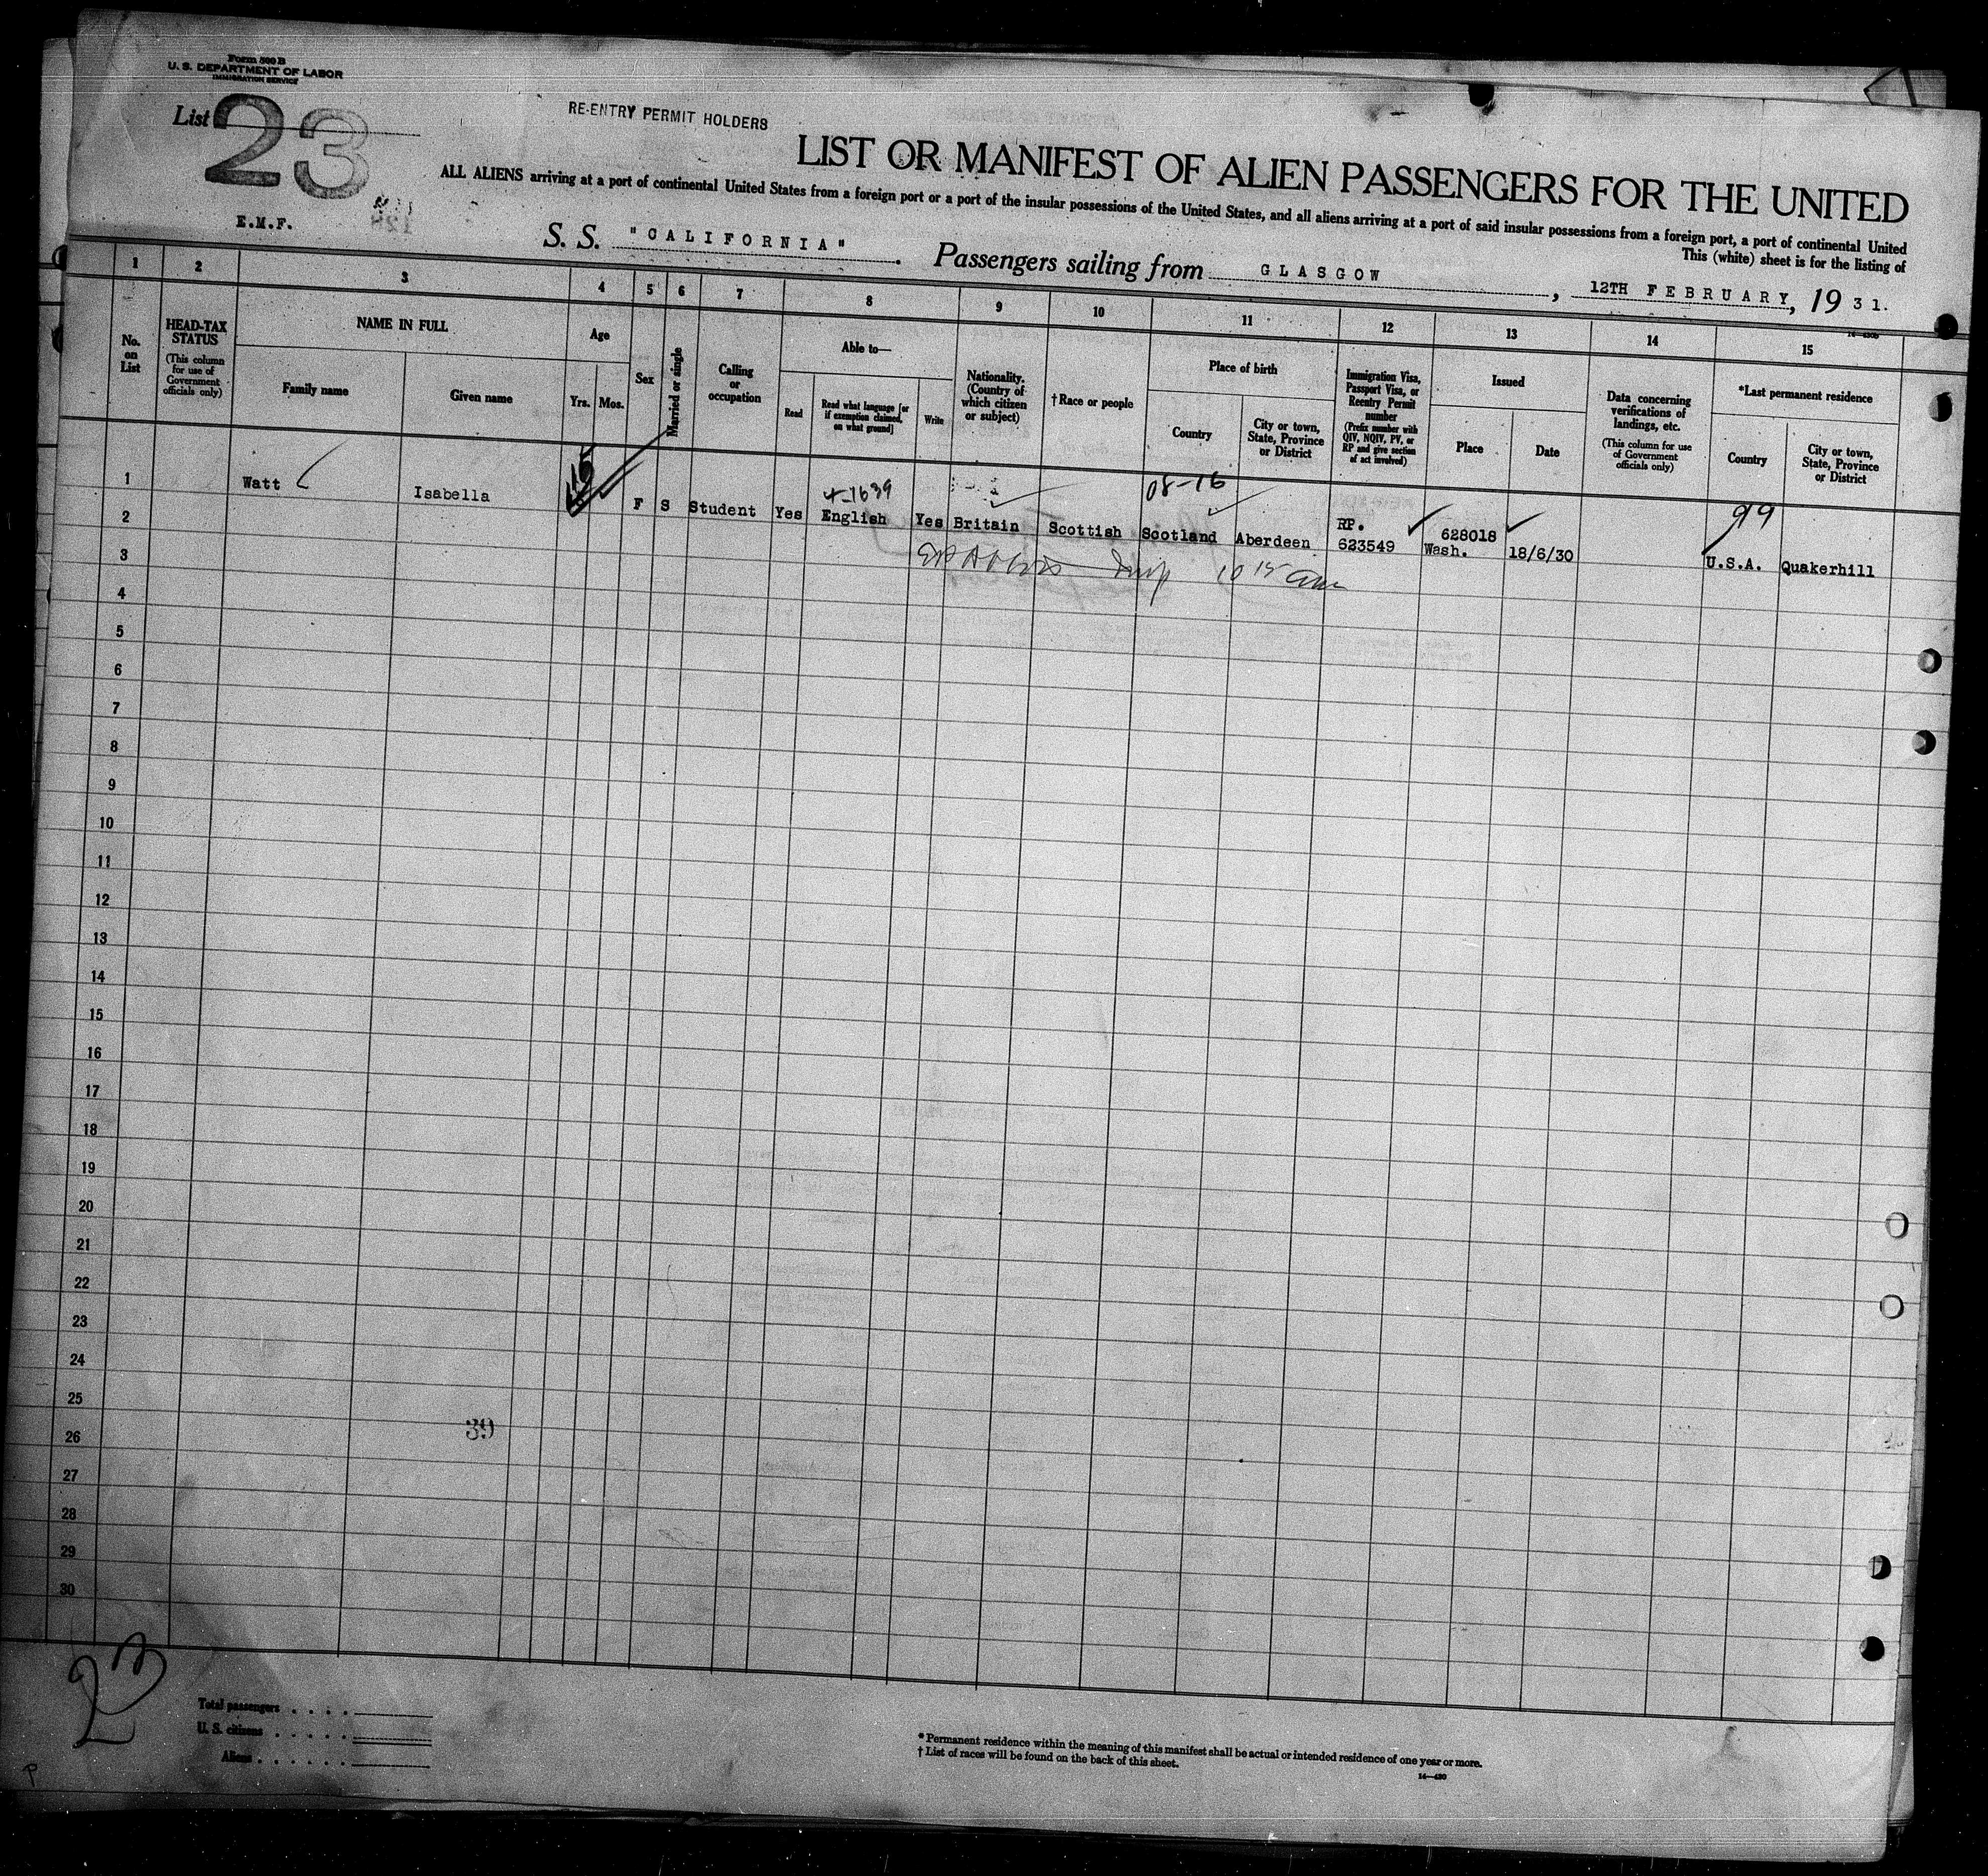 Form 500 B
U. S. DEPARTMENT OF LABOR
IMMIGRATION SERVICE
List 23
RE-ENTRY PERMIT HOLDERS
LIST OR MANIFEST OF ALIEN PASSENGERS FOR THE UNITED
ALL ALIENS arriving at a port of continental United States from a foreign port or a port of the insular possessions of the United States, and all aliens arriving at a port of said insular possessions from a foreign port, a port of continental United
This (white) sheet is for the listing of
E.M.F.
S. S. "CALIFORNIA". Passengers sailing from GLASGOW, 12TH FEBRUARY, 1931.
1 2 3 4 5 6 7 8 9 10 11 12 13 14 15
No. on List
HEAD-TAX STATUS
(This column for use of Government officials only)
NAME IN FULL
Family name
Given name
Age
Yrs.
Mos.
Sex
Married or single
Calling or occupation
Able to—
Read
Read what language [or if exemption claimed, on what ground]
Write
Nationality. (Country of which citizen or subject)
†Race or people
Place of birth
Country
City or town, State, Province or District
Immigration Visa, Passport Visa, or Reentry Permit number
(Prefix number with QIV, NQIV, PV, or RP and give section of act involved)
Issued
Place
Date
Data concerning verifications of landings, etc.
(This column for use of Government officials only)
*Last permanent residence
Country
City or town, State, Province or District
4-1639
08-16
99
1 Watt Isabella F S Student Yes English Yes Britain Scottish Scotland Aberdeen RP. 623549 628018 Wash. 18/6/30 U.S.A. Quakerhill
10 15 am
2
3
4
5
6
7
8
9
10
11
12
13
14
15
16
17
18
19
20
21
22
23
24
25
26
27
28
29
30
39
23
Total passengers
U. S. citizens
Aliens
* Permanent residence within the meaning of this manifest shall be actual or intended residence of one year or more.
† List of races will be found on the back of this sheet.
14—430
P